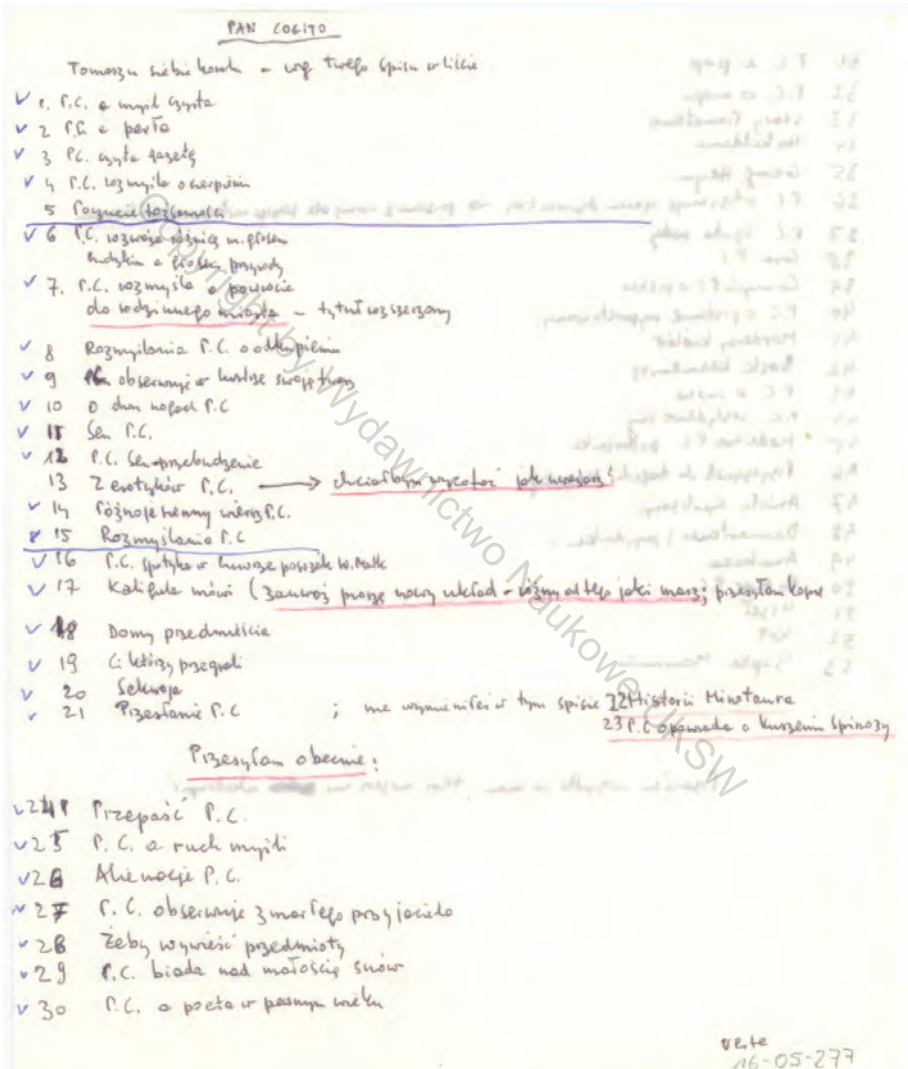 PAN COGITO
Tomaszu siebie – wg Twego spisu w liście
1. P.C. a myśl czysta
2 P.C. a perła
3 P.C. czyta gazetę
4 P.C. rozmyśla o cierpieniu
5 Poczucie tożsamości
6 P.C. rozważa różnicę m. głosem
ludzkim a głosem przyrody
7. P.C. rozmyśla o powrocie
do rodzinnego miasta – tytuł rozszerzony
8 Rozmyślania P.C. o odkupieniu
9 P.C. obserwuje w lustrze swoją twarz
10 O dwu nogach P.C
11 Sen P.C.
12 P.C. Sen-przebudzenie
13 Z erotyków P.C. → chciałbym wycofać jak uważasz?
14 różnoimienny wiersz P.C.
15 Rozmyślania P.C
16 P.C. spotyka w Luwrze posążek W. Matki
17 Kaligula mówi (zauważ proszę nowy układ – różny od tego jaki masz; przesyłam kopię
18 Domy przedmieścia
19 Ci którzy przegrali
20 Sekwoja
21 Przesłanie P.C ; nie wymieniłeś w tym spisie 22 Historii Minotaura
23 P.C opowiada o kuszeniu Spinozy
Przesyłam obecnie:
24 Przepaść P.C.
25 P.C. a ruch myśli
26 Alienacje P.C.
27 P.C. obserwuje zmarłego przyjaciela
28 Żeby wywieść przedmioty
29 P.C. biada nad małością snów
30 P.C. a poeta w pewnym wieku
verte
16-05-277
Copyright by Wydawnictwo Naukowe UKSW